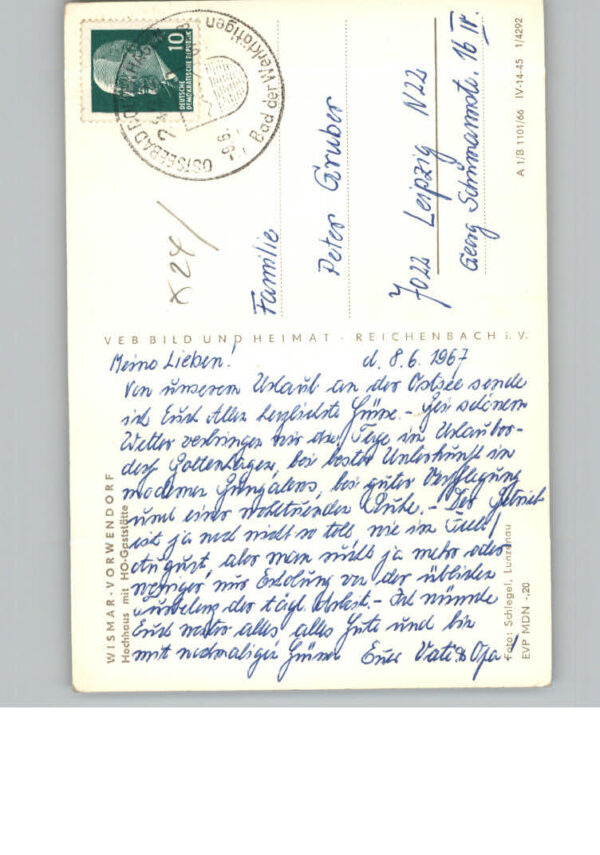 Meine Lieben!
d. 8.6.1967
Von unserem Urlaub an der Ostsee sende
ich Euch Allen herzlichste Grüsse. – Bei schönem
Wetter verbringen wir die Tage in Urlauber-
dorf bei bester Unterkunft in
modernen bei guter Verpflegung
und einer wohltuenden Ruhe. – Der Betrieb
ist ja noch nicht so toll, wie im Juli/
August, aber man sucht ja mehr oder
weniger nur Erholung von der üblichen
der tägl. Arbeit. – Ich wünsche
Euch weiter alles, alles Gute und bin
mit nochmaligen Grüssen Euer Vati & Opa
WISMAR-VORWENDORF
Hochhaus mit HO-Gaststätte
Foto: Schlegel, Lunzenau
EVP MDN -,20
VEB BILD UND HEIMAT · REICHENBACH i. V.
Familie
Peter Gruber
7022 Leipzig N22
Georg Schumannstr. 16 IV.
A 1/B 1101/66 IV-14-45 1/4292
10
DEUTSCHE
DEMOKRATISCHE REPUBLIK
OSTSEEBAD
Bad der Werktätigen
-9.6.